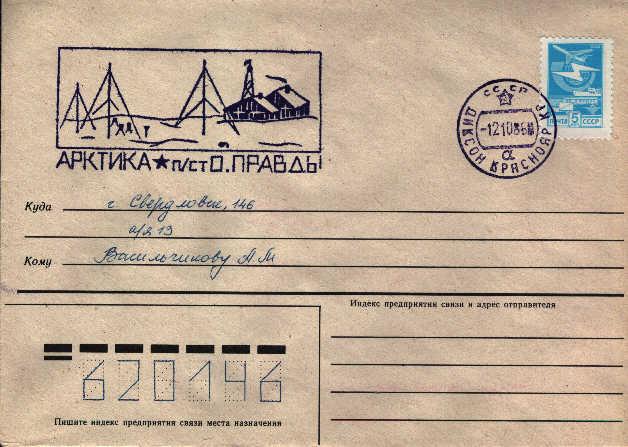 АРКТИКА ★ П/СТ О. ПРАВДЫ
СССР
ДИКСОН КРАСНОЯР. КР.
-1210
α
ПОЧТА 5 СССР
Куда г. Свердловск, 146
а/я 19
Кому Васильчикову А.М
Индекс предприятия связи и адрес отправителя
620146
Пишите индекс предприятия связи места назначения